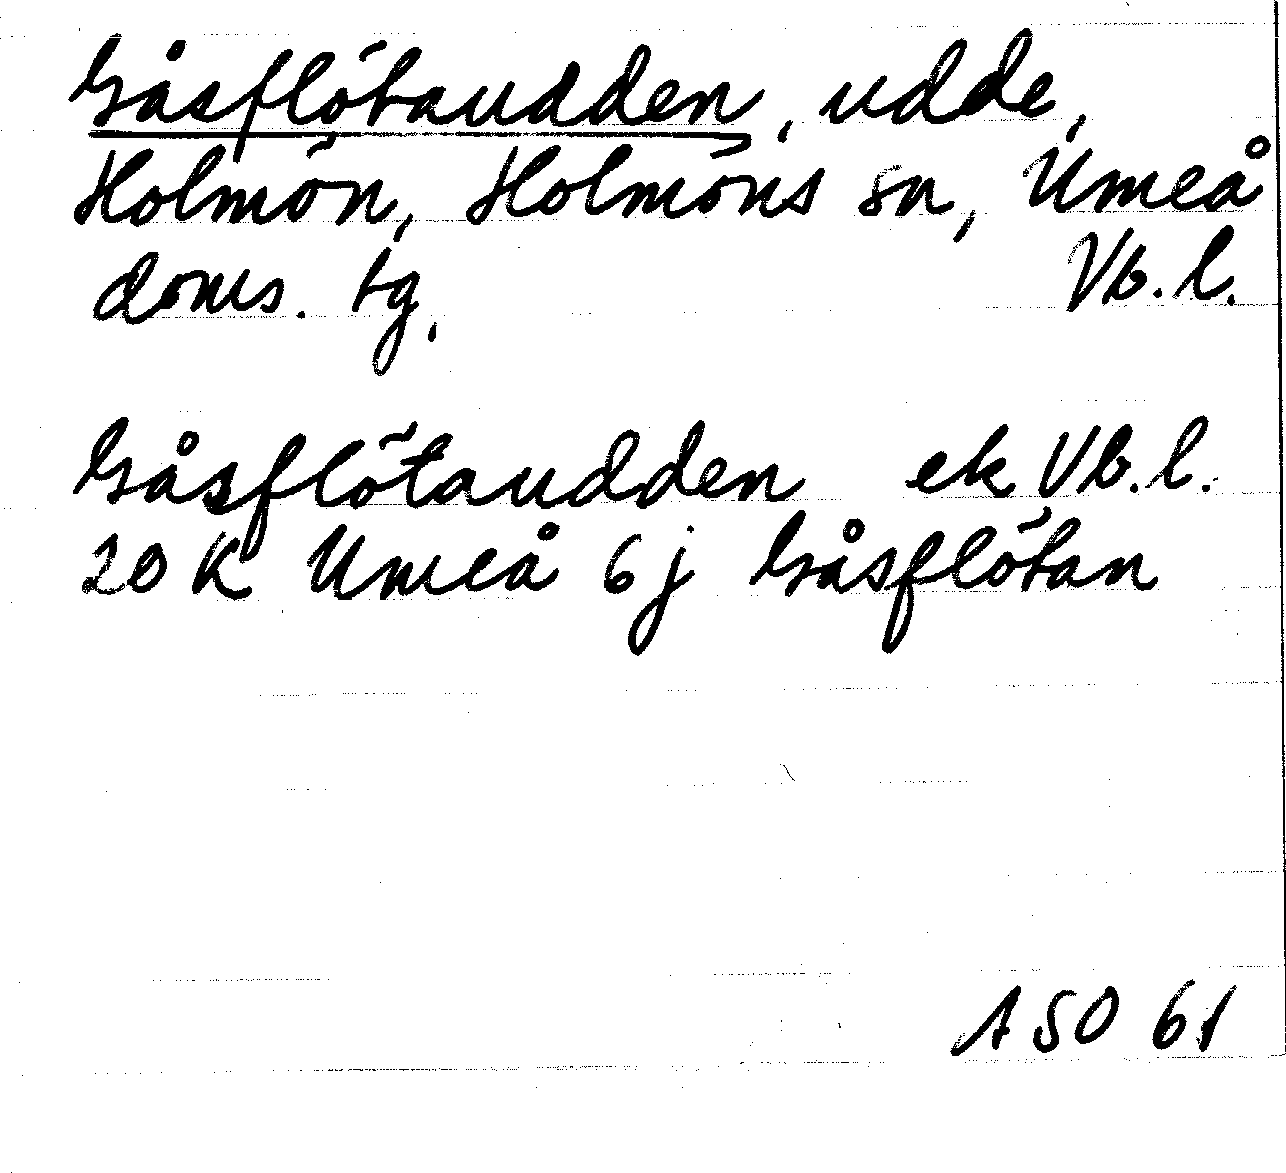 Gåsflötaudden, udde,
Holmön, Holmöns sn, Umeå
doms. tg. Vb.l.
Gåsflötaudden ek Vb.l.
20 K Umeå 6 j Gåsflötan
ASO 61